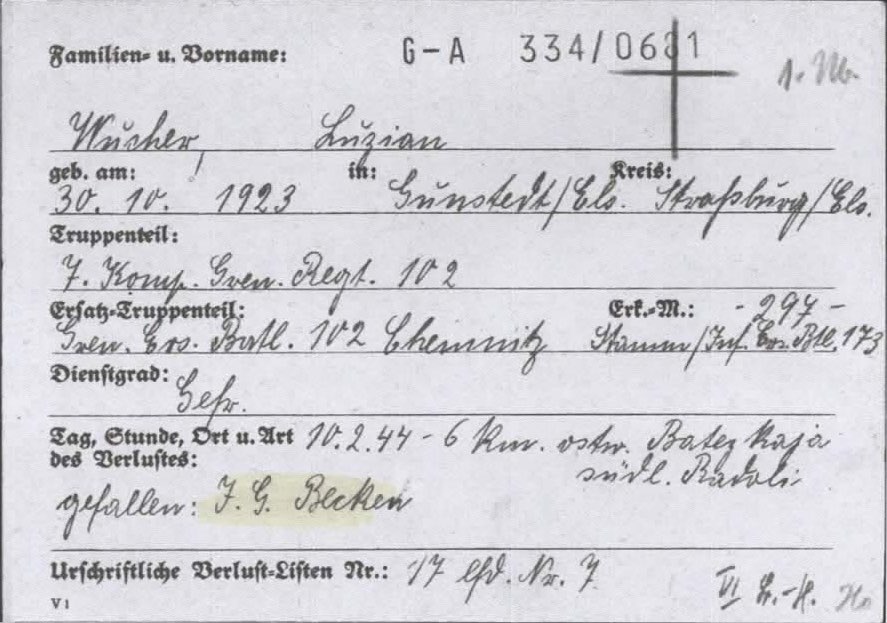 Familien- u. Vorname: G-A 334/0681
Wucher, Luzian
geb. am: in: Kreis:
30. 10. 1923 Gunstedt/Els. Straßburg/Els.
Truppenteil:
7. Komp. Gren. Regt. 102
Ersatz-Truppenteil: Erk.-M.: - 297 -
Gren. Ers. Batl. 102 Chemnitz Stamm/Inf. Ers. Btl. 173
Dienstgrad:
Gefr.
Tag, Stunde, Ort u. Art 10.2.44 - 6 km. ostw. Batezkaja
des Verlustes: südl. Radoli
gefallen: I. G. Becken
Urschriftliche Verlust-Listen Nr.: 17 lfd. Nr. 7
V 1 VI